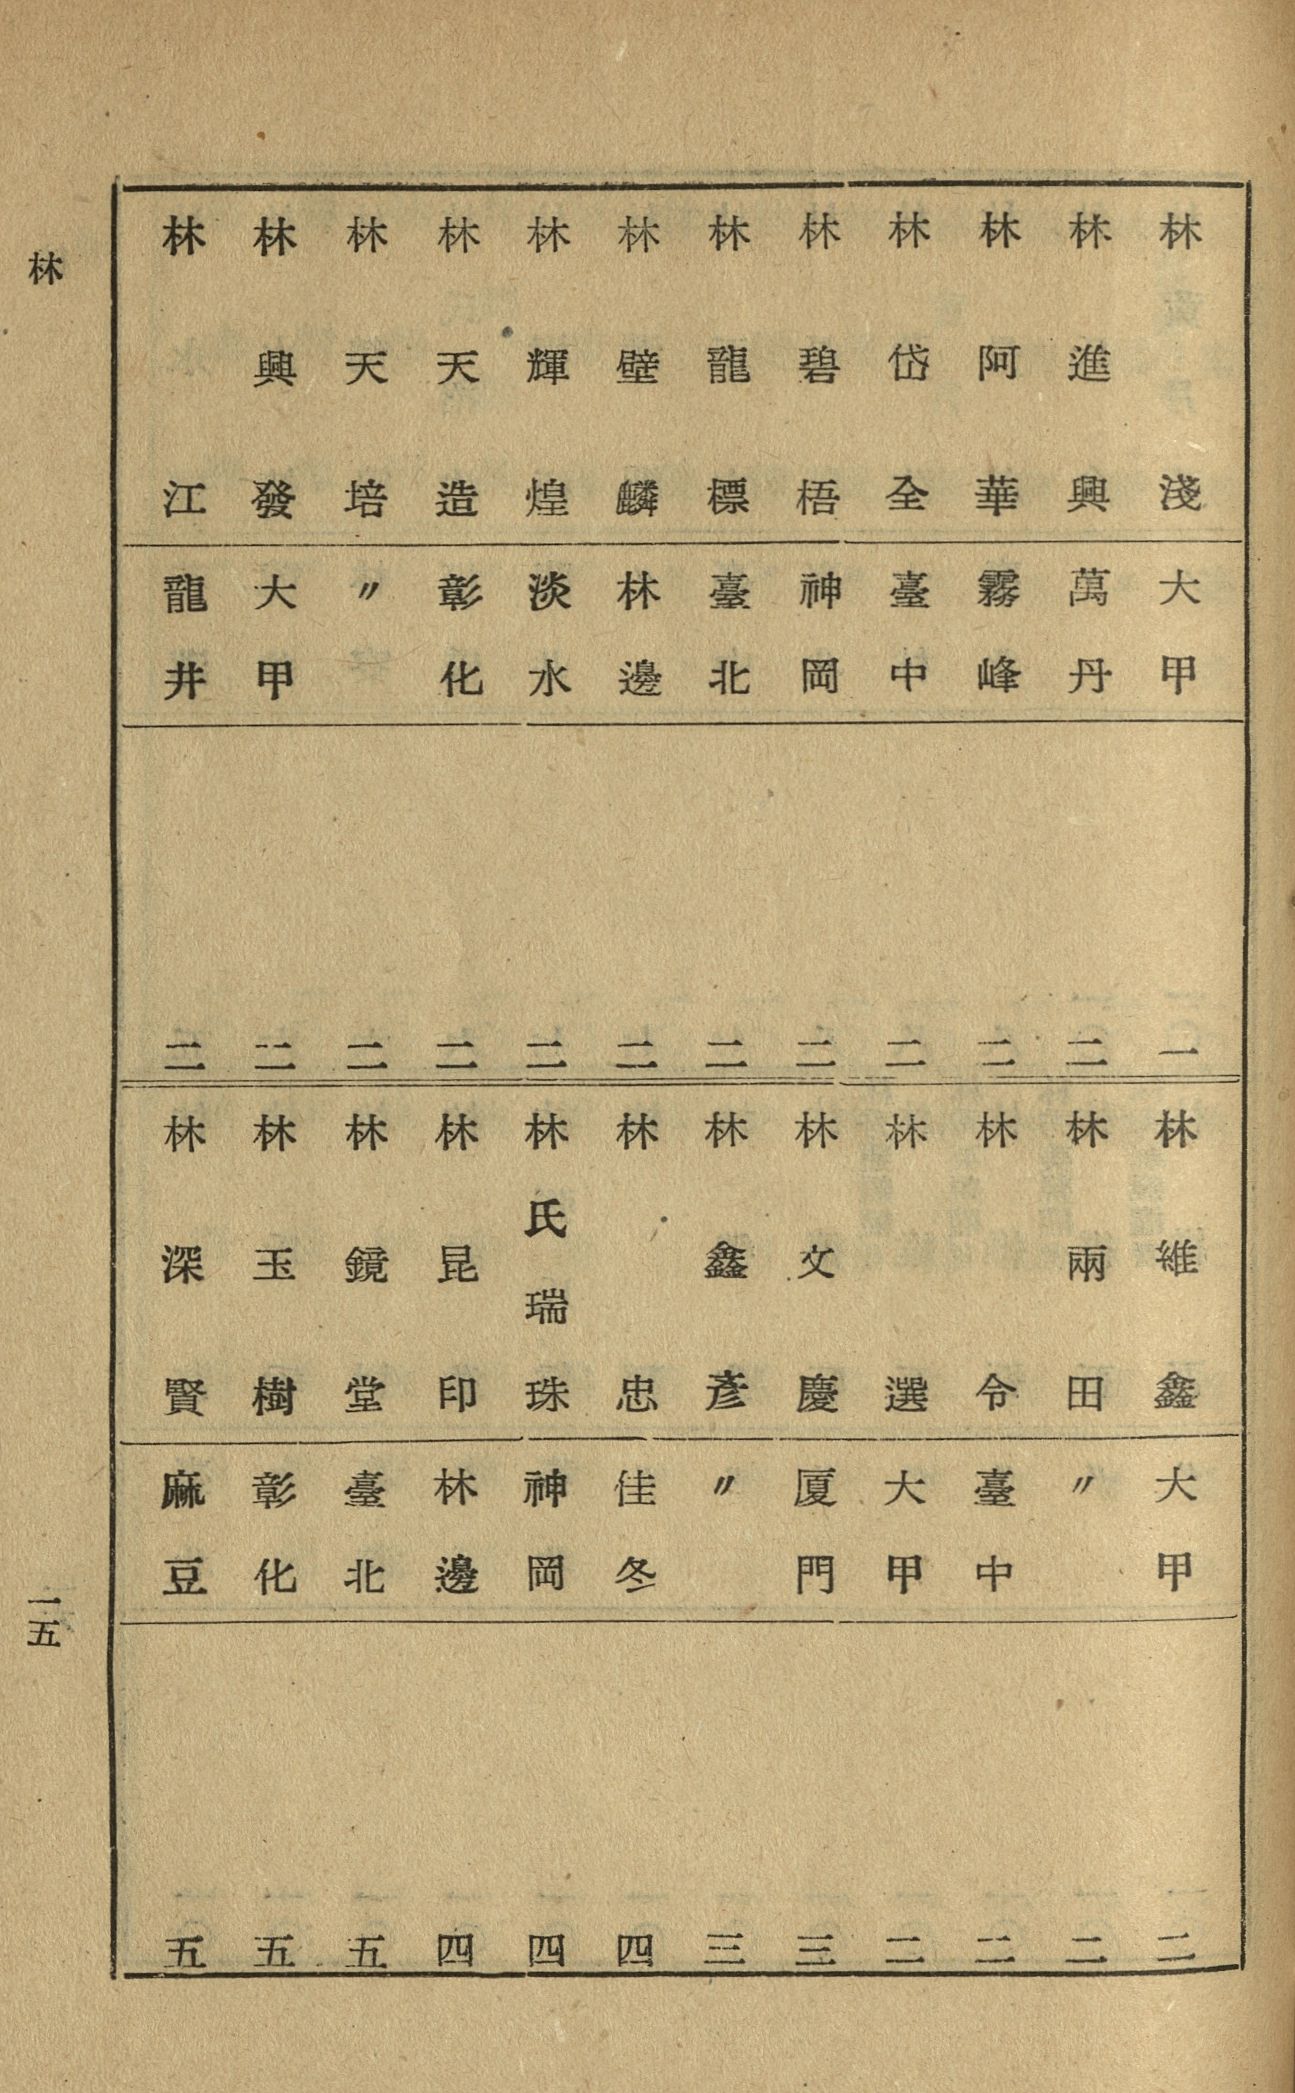 林淺 大甲 一
林進興 萬丹 二
林阿華 霧峰 二
林岱全 臺中 二
林碧梧 神岡 二
林龍標 臺北 二
林壁麟 林邊 二
林輝煌 淡水 二
林天造 彰化 二
林天培 〃 二
林興發 大甲 二
林江 龍井 二
林維鑫 大甲 二
林兩田 〃 二
林令 臺中 二
林選 大甲 二
林文慶 厦門 三
林鑫彥 〃 三
林忠 佳冬 四
林氏瑞珠 神岡 四
林昆印 林邊 四
林鏡堂 臺北 五
林玉樹 彰化 五
林深賢 麻豆 五
林
一五